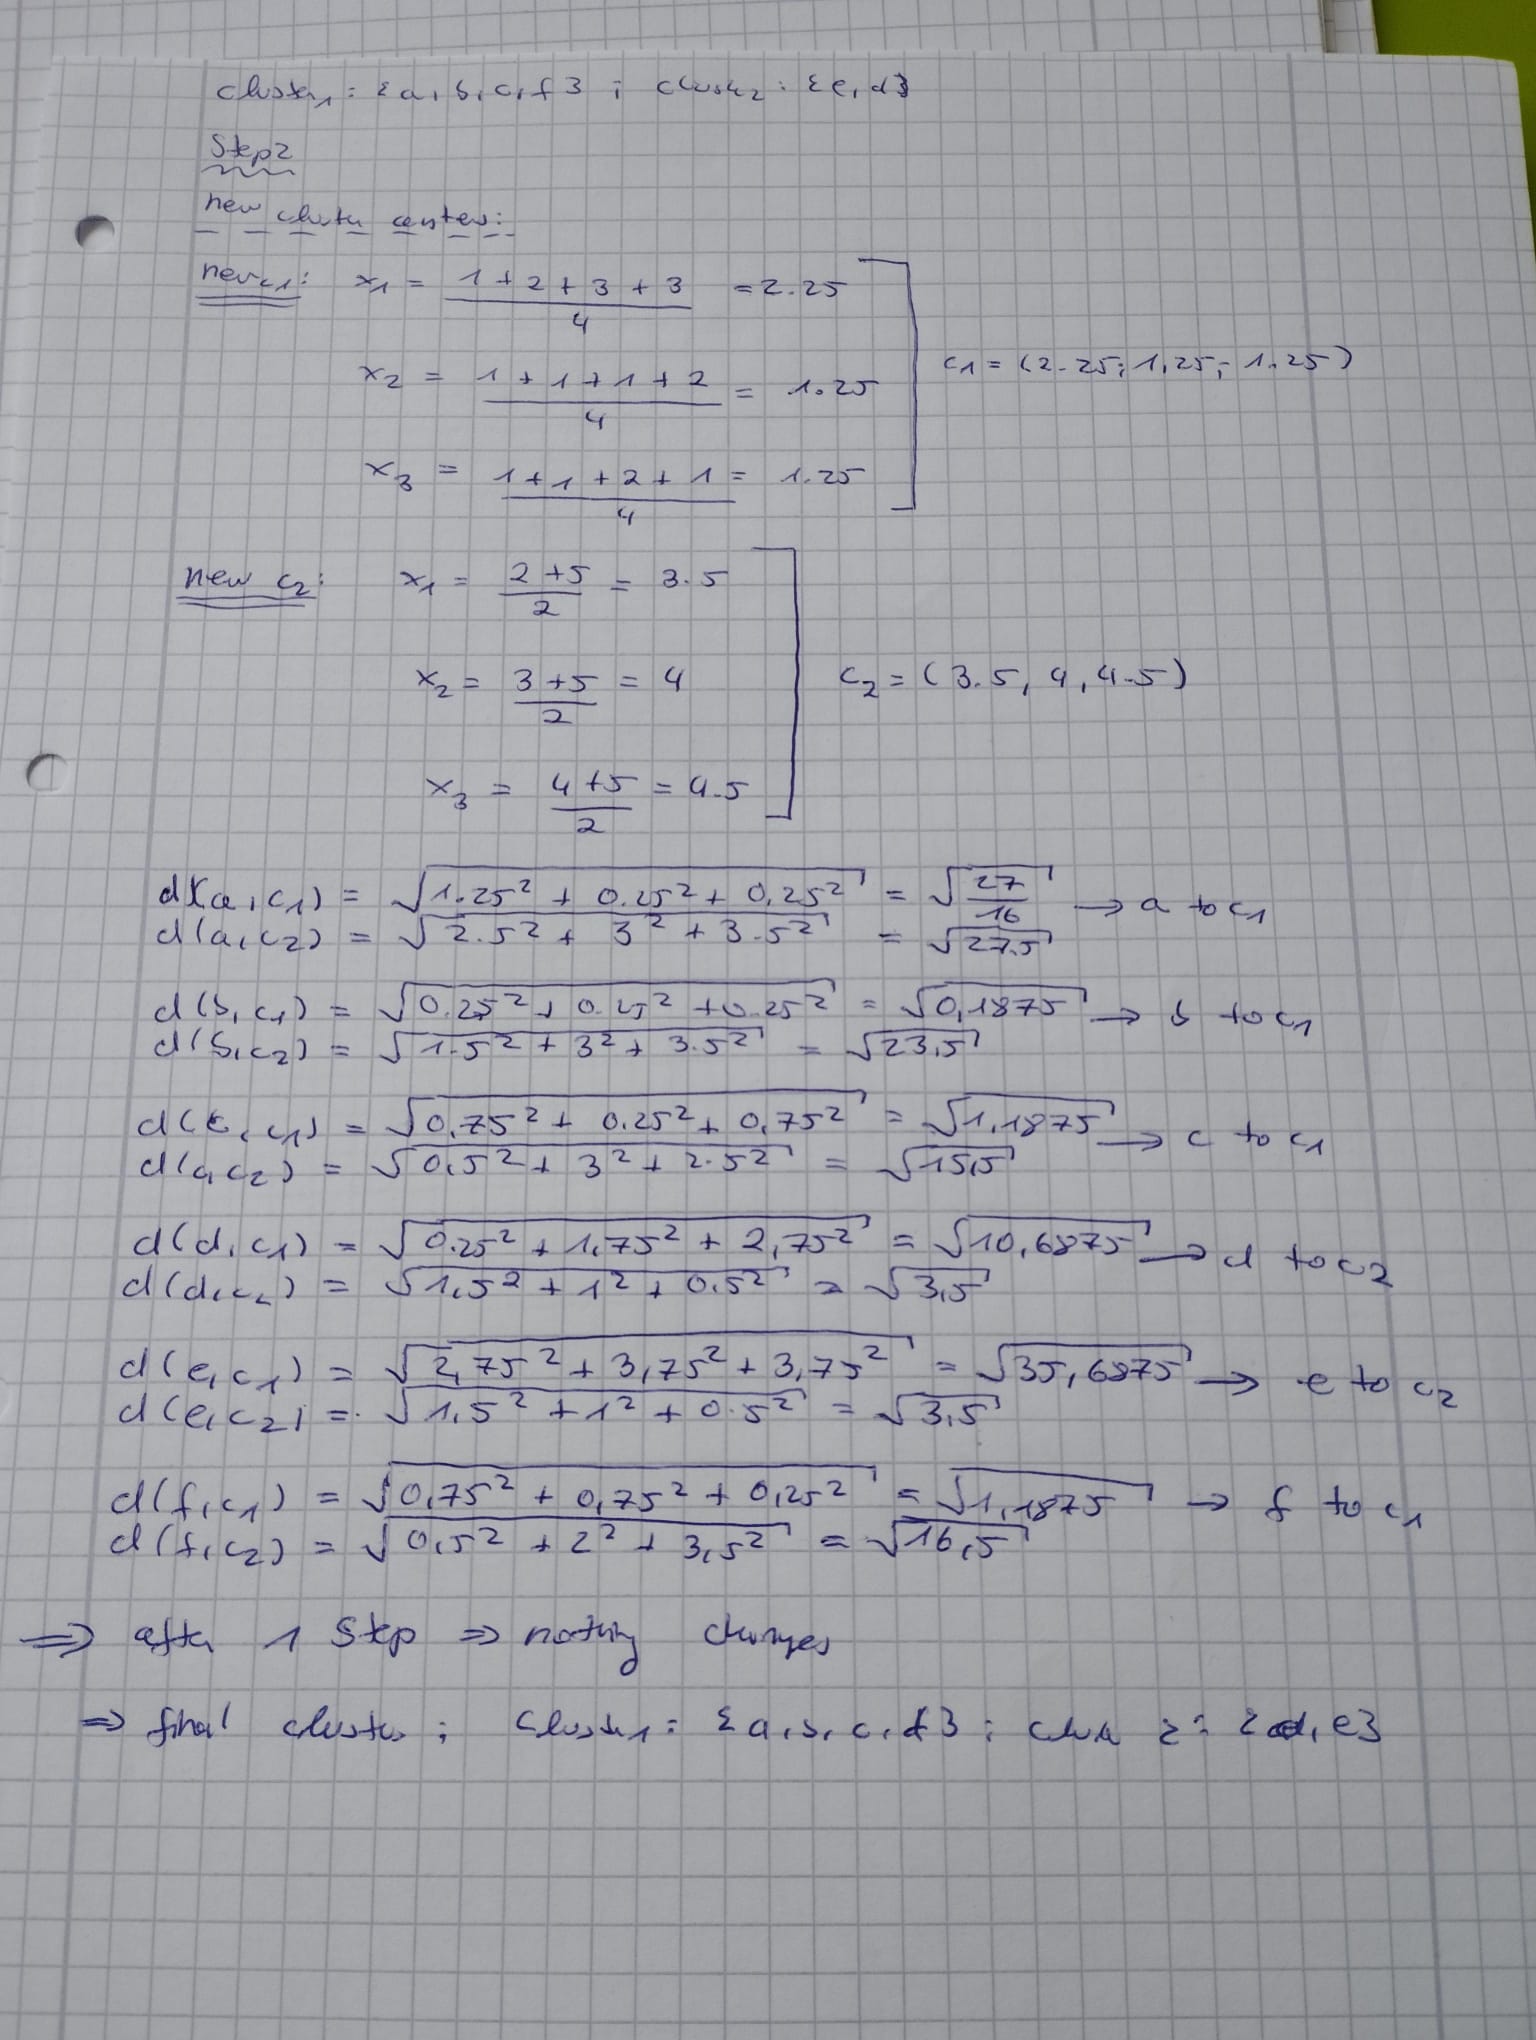 cluster1 : {a, b, c, f} ; cluster2 : {e, d}
Step 2
new cluster centers:
new c1: x1 = (1 + 2 + 3 + 3)/4 = 2.25
x2 = (1 + 1 + 1 + 2)/4 = 1.25
c1 = (2.25; 1,25; 1.25)
x3 = (1 + 1 + 2 + 1)/4 = 1.25
new c2: x1 = (2 + 5)/2 = 3.5
x2 = (3 + 5)/2 = 4
c2 = (3.5, 4, 4.5)
x3 = (4 + 5)/2 = 4.5
d(a, c1) = √(1.25² + 0.25² + 0,25²) = √(27/16) → a to c1
d(a, c2) = √(2.5² + 3² + 3.5²) = √27.5
d(b, c1) = √(0.25² + 0.25² + 0.25²) = √0,1875 → b to c1
d(b, c2) = √(1.5² + 3² + 3.5²) = √23,5
d(c, c1) = √(0,75² + 0.25² + 0,75²) = √1,1875 → c to c1
d(c, c2) = √(0,5² + 3² + 2.5²) = √15,5
d(d, c1) = √(0.25² + 1,75² + 2,75²) = √10,6875 → d to c2
d(d, c2) = √(1,5² + 1² + 0.5²) = √3,5
d(e, c1) = √(2,75² + 3,75² + 3,75²) = √35,6875 → e to c2
d(e, c2) = √(1.5² + 1² + 0.5²) = √3,5
d(f, c1) = √(0,75² + 0,75² + 0,25²) = √1,1875 → f to c1
d(f, c2) = √(0,5² + 2² + 3,5²) = √16,5
⇒ after 1 Step ⇒ nothing changes
⇒ final cluster ; Cluster1 : {a, b, c, f} ; 2 : {d, e}